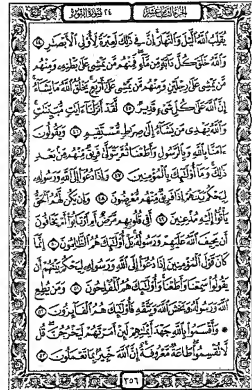 الجزء الثامن عشر ٢٤ سورة النور
يُقَلِّبُ ٱللَّهُ ٱلَّيْلَ وَٱلنَّهَارَ إِنَّ فِي ذَٰلِكَ لَعِبْرَةً لِّأُو۟لِي ٱلْأَبْصَٰرِ ٤٤
وَٱللَّهُ خَلَقَ كُلَّ دَآبَّةٍ مِّن مَّآءٍ فَمِنْهُم مَّن يَمْشِي عَلَىٰ بَطْنِهِۦ وَمِنْهُم
مَّن يَمْشِي عَلَىٰ رِجْلَيْنِ وَمِنْهُم مَّن يَمْشِي عَلَىٰٓ أَرْبَعٍ يَخْلُقُ ٱللَّهُ مَا يَشَآءُ
إِنَّ ٱللَّهَ عَلَىٰ كُلِّ شَيْءٍ قَدِيرٌ ٤٥ لَّقَدْ أَنزَلْنَآ ءَايَٰتٍ مُّبَيِّنَٰتٍ
وَٱللَّهُ يَهْدِي مَن يَشَآءُ إِلَىٰ صِرَٰطٍ مُّسْتَقِيمٍ ٤٦ وَيَقُولُونَ
ءَامَنَّا بِٱللَّهِ وَبِٱلرَّسُولِ وَأَطَعْنَا ثُمَّ يَتَوَلَّىٰ فَرِيقٌ مِّنْهُم مِّنۢ بَعْدِ
ذَٰلِكَ وَمَآ أُو۟لَٰٓئِكَ بِٱلْمُؤْمِنِينَ ٤٧ وَإِذَا دُعُوٓا۟ إِلَى ٱللَّهِ وَرَسُولِهِۦ
لِيَحْكُمَ بَيْنَهُمْ إِذَا فَرِيقٌ مِّنْهُم مُّعْرِضُونَ ٤٨ وَإِن يَكُن لَّهُمُ ٱلْحَقُّ
يَأْتُوٓا۟ إِلَيْهِ مُذْعِنِينَ ٤٩ أَفِي قُلُوبِهِم مَّرَضٌ أَمِ ٱرْتَابُوٓا۟ أَمْ يَخَافُونَ
أَن يَحِيفَ ٱللَّهُ عَلَيْهِمْ وَرَسُولُهُۥ بَلْ أُو۟لَٰٓئِكَ هُمُ ٱلظَّٰلِمُونَ ٥٠ إِنَّمَا
كَانَ قَوْلَ ٱلْمُؤْمِنِينَ إِذَا دُعُوٓا۟ إِلَى ٱللَّهِ وَرَسُولِهِۦ لِيَحْكُمَ بَيْنَهُمْ أَن
يَقُولُوا۟ سَمِعْنَا وَأَطَعْنَا وَأُو۟لَٰٓئِكَ هُمُ ٱلْمُفْلِحُونَ ٥١ وَمَن يُطِعِ
ٱللَّهَ وَرَسُولَهُۥ وَيَخْشَ ٱللَّهَ وَيَتَّقْهِ فَأُو۟لَٰٓئِكَ هُمُ ٱلْفَآئِزُونَ ٥٢
۞ وَأَقْسَمُوا۟ بِٱللَّهِ جَهْدَ أَيْمَٰنِهِمْ لَئِنْ أَمَرْتَهُمْ لَيَخْرُجُنَّ قُل
لَّا تُقْسِمُوا۟ طَاعَةٌ مَّعْرُوفَةٌ إِنَّ ٱللَّهَ خَبِيرٌۢ بِمَا تَعْمَلُونَ ٥٣
٣٥٦